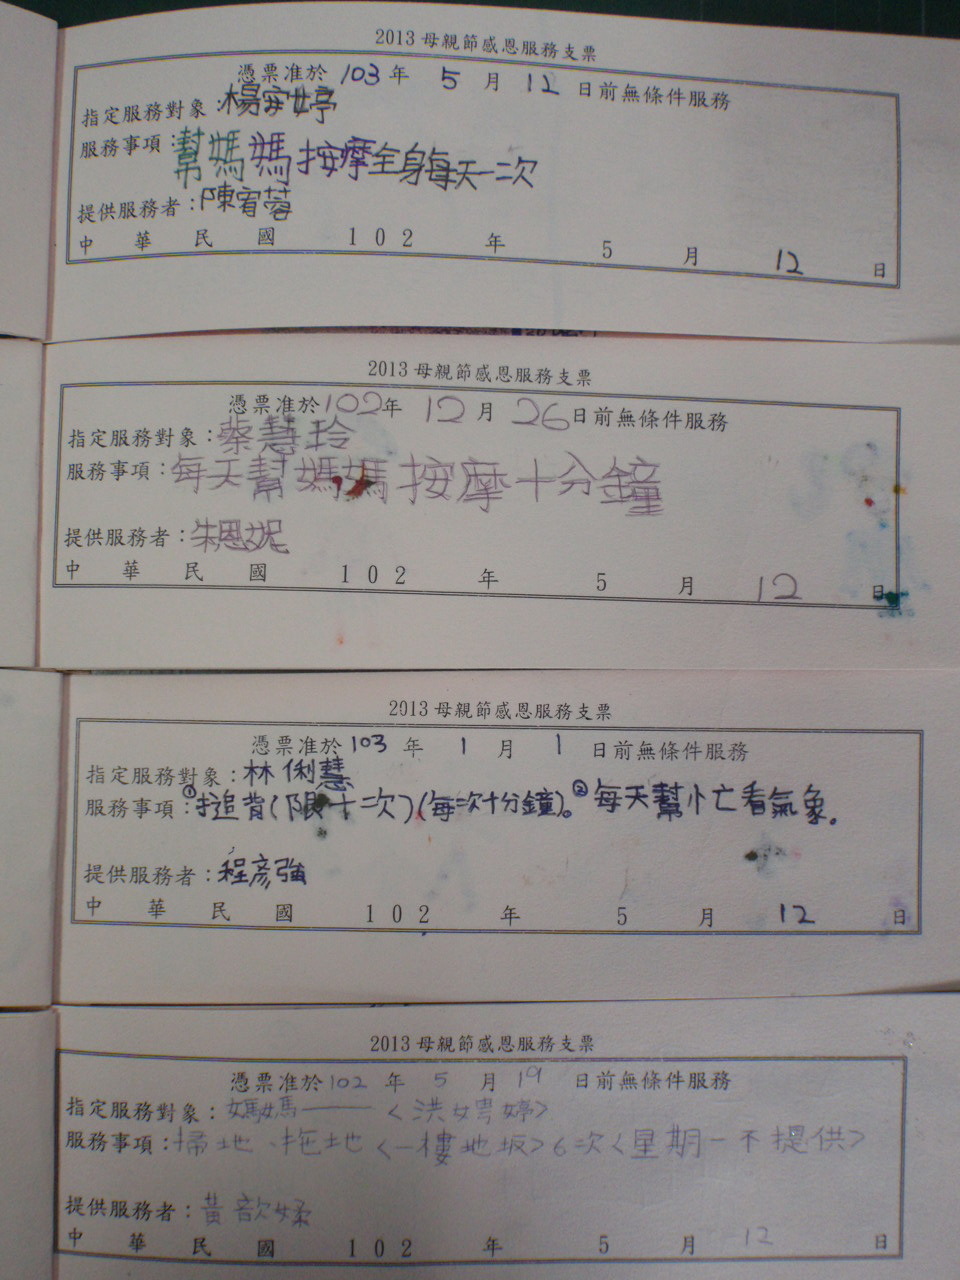 2013母親節感恩服務支票
憑票准於103年 5 月 12 日前無條件服務
指定服務對象:楊宇婷
服務事項:幫媽媽按摩全身每天一次
提供服務者:陳宥蓉
中 華 民 國 102 年 5 月 12 日
2013母親節感恩服務支票
憑票准於102年 12 月 26日前無條件服務
指定服務對象:蔡慧玲
服務事項:每天幫媽媽按摩十分鐘
提供服務者:朱恩妮
中 華 民 國 102 年 5 月 12 日
2013母親節感恩服務支票
憑票准於103 年 1 月 1 日前無條件服務
指定服務對象:林俐慧
服務事項:①搥背(限十二次)(每次十分鐘)。②每天幫忙看氣象。
提供服務者:程彥強
中 華 民 國 102 年 5 月 12 日
2013母親節感恩服務支票
憑票准於102 年 5 月 19 日前無條件服務
指定服務對象:媽媽——<洪娉婷>
服務事項:掃地、拖地<一樓地板>6次<星期一不提供>
提供服務者:黃歆媃
中 華 民 國 102 年 5 月 12 日